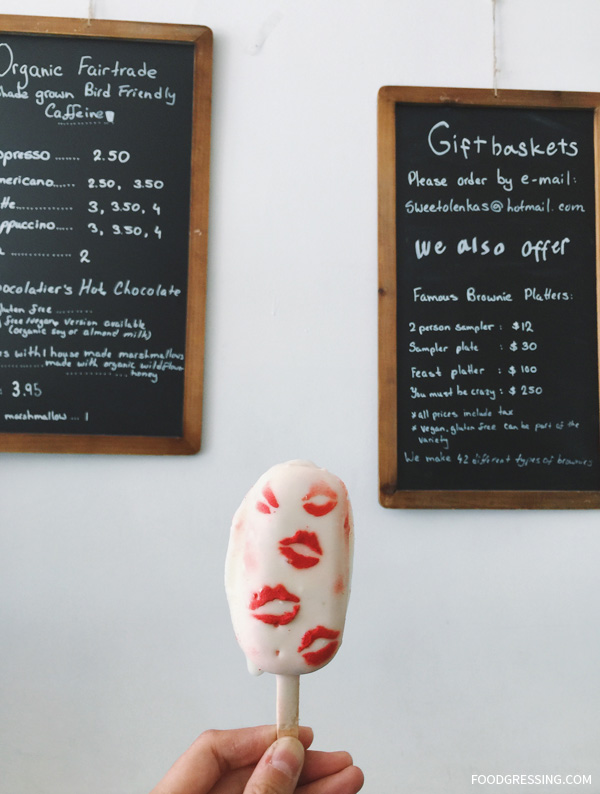 Organic Fairtrade
shade grown Bird Friendly
Caffeine
ppresso ...... 2.50
mericano..... 2.50, 3.50
tte............ 3, 3.50, 4
ppuccino..... 3, 3.50, 4
2
ocolatier's Hot Chocolate
gluten free .........
free/vegan version available
(organic soy or almond milk)
s with 1 house made marshmallows
made with organic wildflower
honey
3.95
marshmallow ... 1
Gift baskets
Please order by e-mail:
Sweetolenkas@hotmail.com
We also offer
Famous Brownie Platters:
2 person sampler : $12
Sampler plate : $30
Feast platter : $100
You must be crazy : $250
*all prices include tax
* vegan, gluten free can be part of the
variety
We make 42 different types of brownies
FOODGRESSING.COM